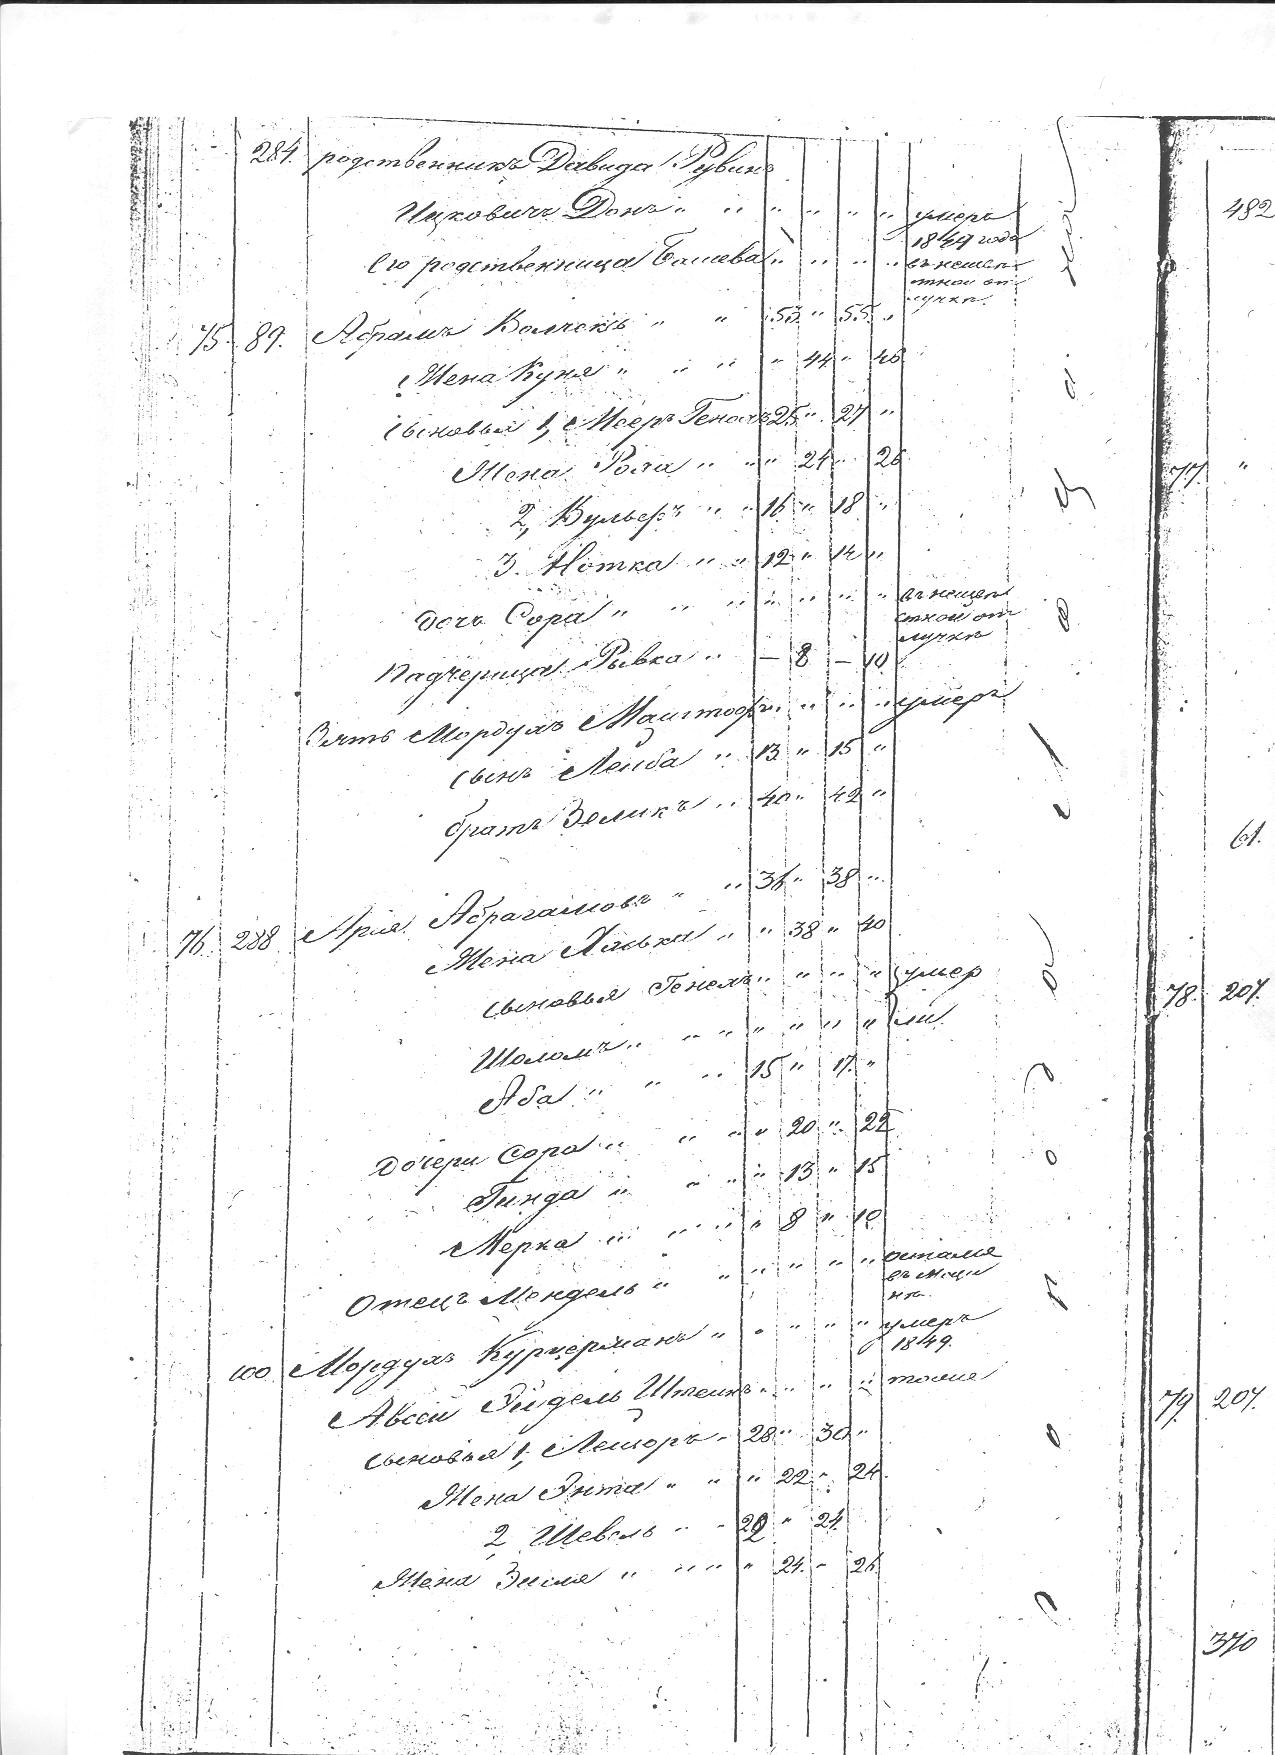 284. родственникъ Давида Рувинъ
Ицковичъ Донъ " " " " " " умеръ 1849 года
Его родственница Башева " " " " въ неизвѣстной отлучкѣ
75. 89. Абрамъ Волчекъ " " 53 " 55 "
Жена Куня " " " " 44 " 46
Сыновья 1, Мееръ Генохъ 25 " 27 "
Жена Роза " " " 24 " 26
2, Вульферъ " " 16 " 18 "
3. Нотка " " 12 " 14 "
дочь Сора " " " " " " " въ неизвѣстной отлучкѣ
Падчерица Рывка " — 8 — 10
Зять Мордухъ " " " умеръ
сынъ Лейба " 13 " 15 "
братъ Зеликъ " 40 " 42 "
76. 288 Абрагамовъ " " 36 " 38 "
Жена " " 38 " 40
сыновья Генехъ " " " " умер
Шоломъ " " " " " " " ли
Аба " " " 15 " 17. "
Дочери Сора " " " " 20 " 22
Гинда " " " " 13 " 15
Мерка " " " " 8 " 10
Отецъ Мендель " " " " " "
100 Мордухъ Курцерманъ " " " " " умеръ 1849.
Штеинъ " " " " тоже
сыновья 1, " 28 " 30 "
Жена Энта " " " 22 " 24.
2, Шевель " " 22 " 24
Жена Зисля " " " " 24. " 26
482
77. "
61.
78. 207.
79. 207.
370